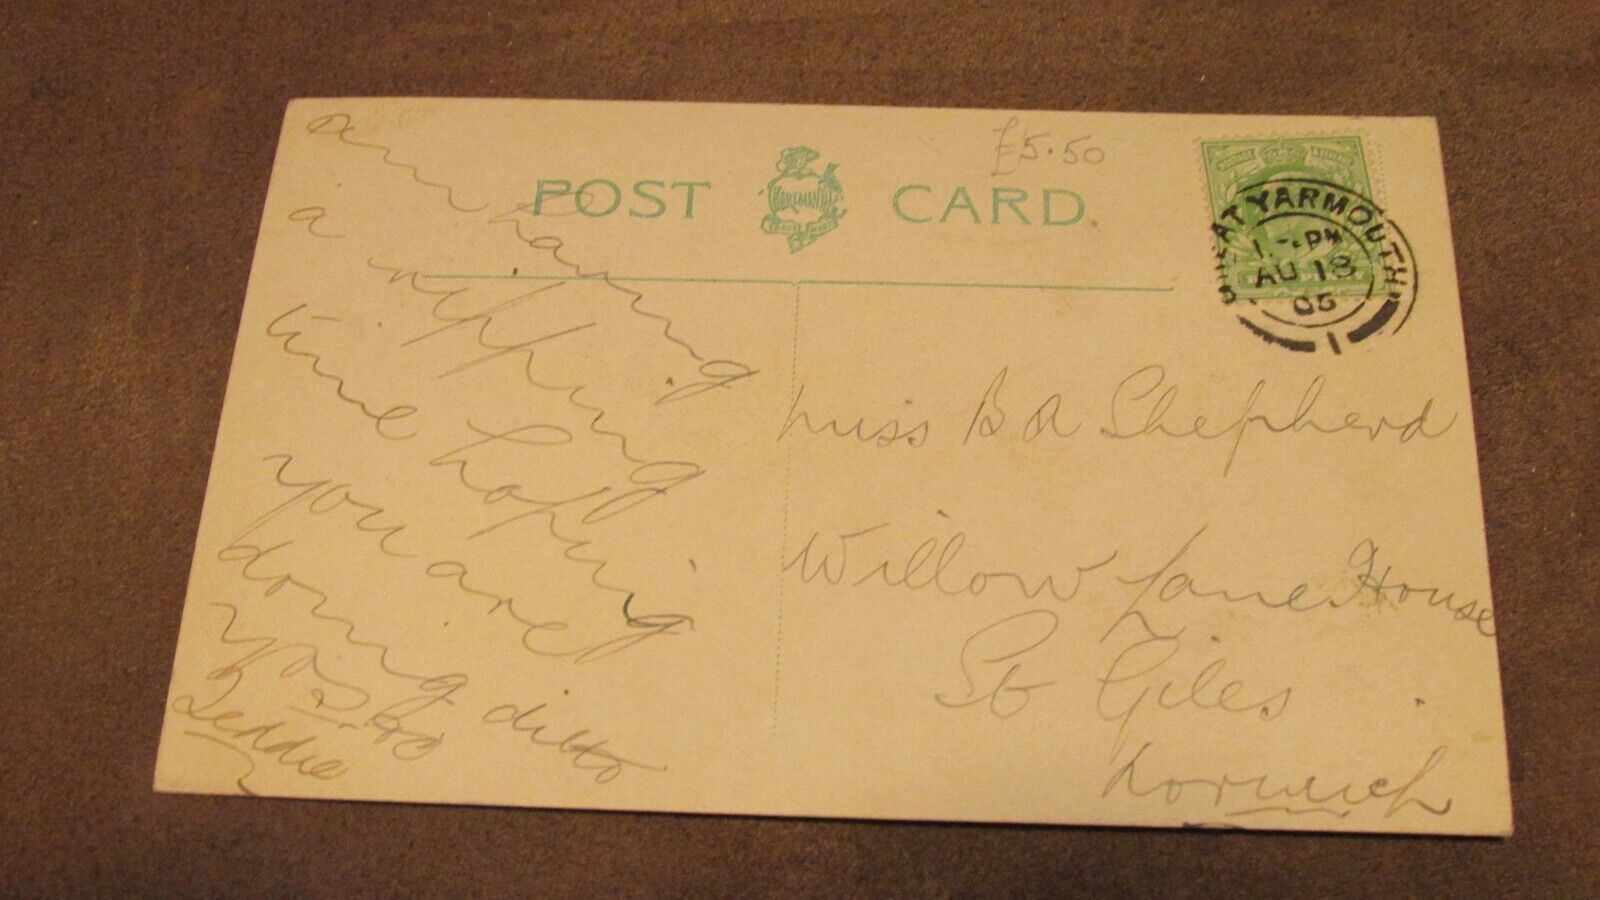 £5.50
POST CARD.
GREAT YARMOUTH
PM
AU 18
05
1
am having
a ripping
time hoping
you are
doing ditto
Teddie
Miss B A Shepherd
Willow Lane House
St Giles
Norwich